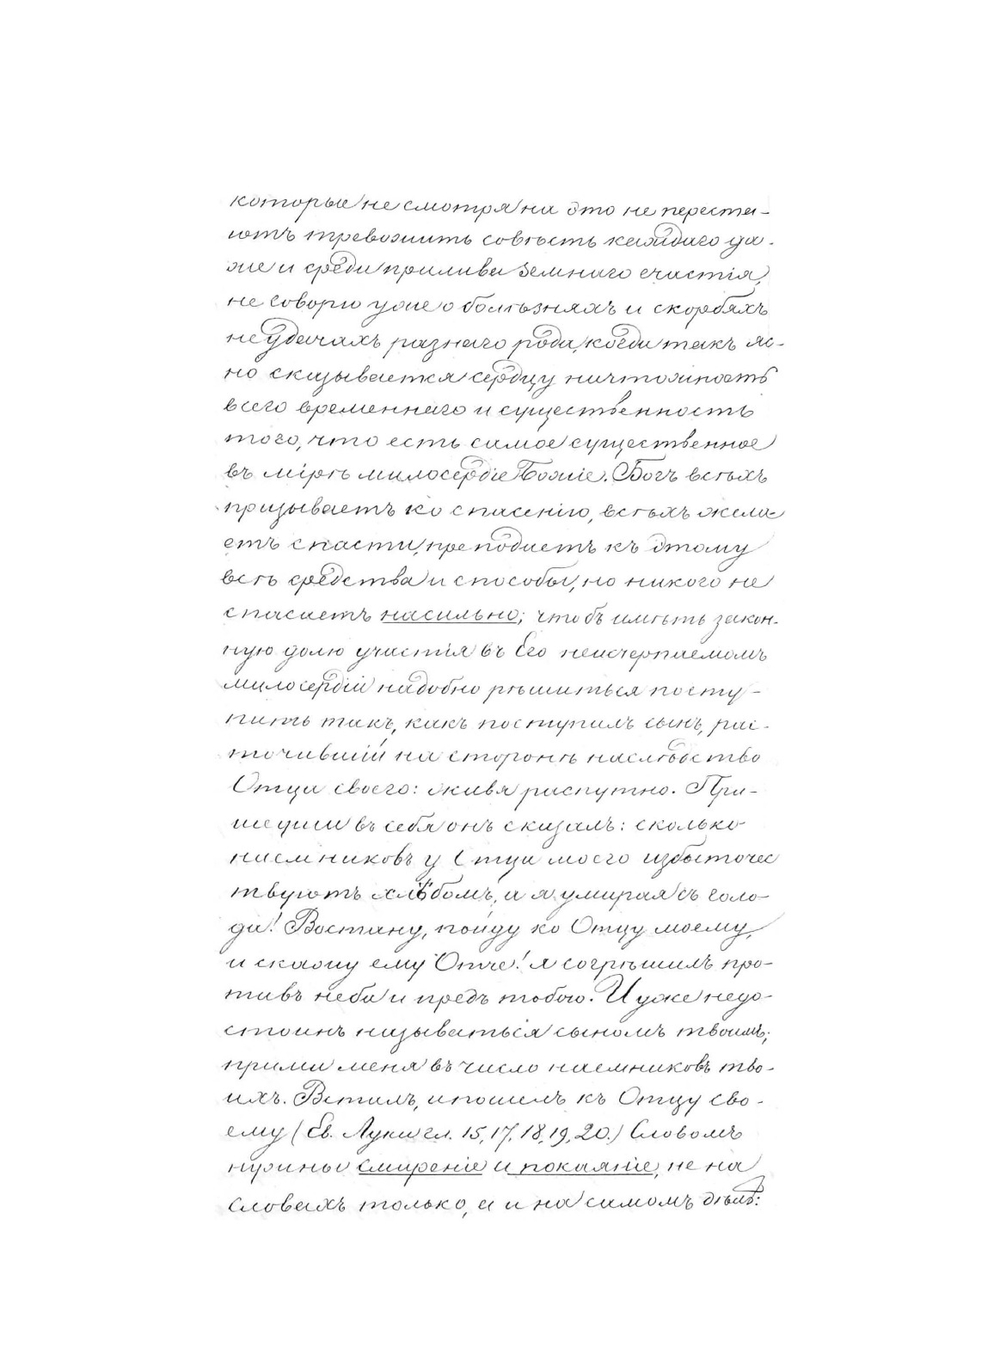 которые не смотря на это не переста-
ютъ тревожить совѣсть каждаго да-
же и среди прилива земнаго счастія,
не говорю уже о болѣзняхъ и скорбяхъ
неудачахъ разнаго рода, когда такъ яс-
но сказывается сердцу ничтожность
всего временнаго и существенность
того, что есть самое существенное
въ мірѣ милосердіе Божіе. Богъ всѣхъ
призываетъ ко спасенію, всѣхъ жела
етъ спасти, преподаетъ къ этому
всѣ средства и способы, но никого не
спасаетъ насильно; чтобъ имѣть закон-
ную долю участія въ Его неисчерпаемомъ
милосердіи надобно рѣшиться посту-
пить такъ, какъ поступилъ сынъ, рас-
точившій на сторонѣ наслѣдство
Отца своего: живя распутно. При-
шедши въ себя онъ сказалъ: сколько
наемниковъ у Отца моего избыточес
твуютъ хлѣбомъ, а я умираю съ голо-
да! Востану, пойду ко Отцу моему,
и скажу ему Отче! я согрѣшилъ про-
тивъ неба и предъ тобою. И уже недо-
стоинъ называться сыномъ твоимъ;
прими меня въ число наемниковъ тво-
ихъ. Всталъ, и пошелъ къ Отцу сво-
ему (Ев. Луки гл. 15, 17, 18, 19, 20.) Словомъ
нужны смиреніе и покаяніе, не на
словахъ только, а и на самомъ дѣлѣ: